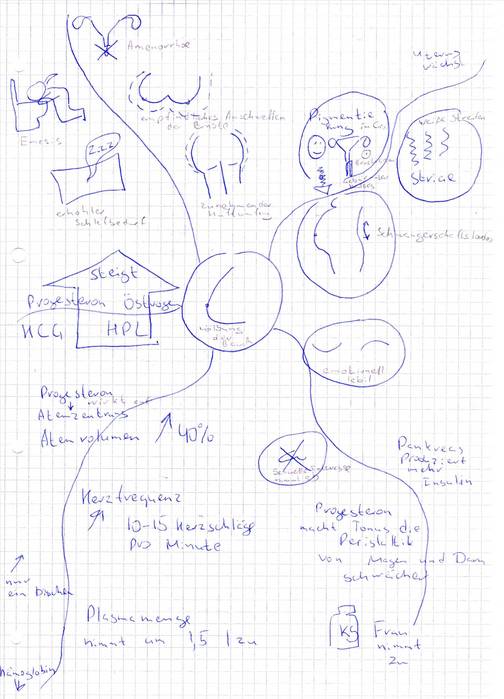 Amenorrhoe
Emesis
empfindliches Anschwellen
der Brüste
Z.Z.Z
erhöhter
Schlafbedarf
Zunehmender
Hüftumfang
Pigmentie
rung
uterus
wächst
weiße Streifen
Striae
Schwangerschaftslordose
steigt
Progesteron Östrogen
HCG HPL
Wölbung
der
Bauch
emotionell
labil
Progesteron
wirkt auf
Atemzentrum
Atemvolumen ↗ 40%
Herzfrequenz
↗ 10-15 Herzschläge
pro Minute
nimmt ab
Pankreas
Produziert
mehr
Insulin
Progesteron
macht Tonus die
Peristaltik
von Magen und Darm
schwächer
nur
ein bischen
Plasmamenge
nimmt um 1,5 l zu
KG Frau
nimmt
zu
Hämoglobin